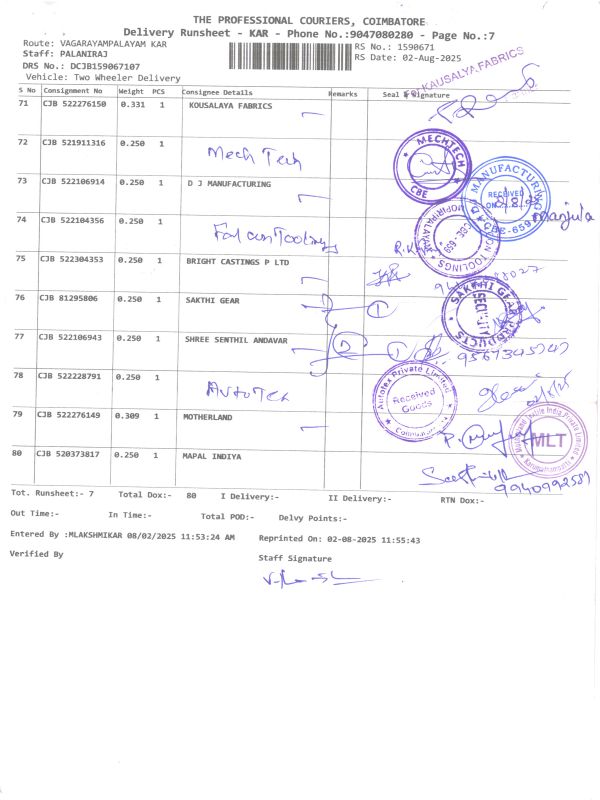 THE PROFESSIONAL COURIERS, COIMBATORE
Delivery Runsheet - KAR - Phone No.:9047080280 - Page No.:7
Route: VAGARAYAMPALAYAM KAR
RS No.: 1590671
Staff: PALANIRAJ
RS Date: 02-Aug-2025
DRS No.: DCJB159067107
Vehicle: Two Wheeler Delivery
KAUSALYA FABRICS
S No Consignment No Weight PCS Consignee Details Remarks Seal & Signature
71 CJB 522276150 0.331 1 KOUSALAYA FABRICS
72 CJB 521911316 0.250 1 Mech Tech
MECHTECH
CBE
73 CJB 522106914 0.250 1 D J MANUFACTURING
MANUFACTURING
RECEIVED
ON
CBE-659
Manjula
74 CJB 522104356 0.250 1 Falcon Toolings
TOOLINGS
75 CJB 522304353 0.250 1 BRIGHT CASTINGS P LTD
76 CJB 81295806 0.250 1 SAKTHI GEAR
SAKTHI GEAR PRODUCTS
SECURITY
77 CJB 522106943 0.250 1 SHREE SENTHIL ANDAVAR
78 CJB 522228791 0.250 1 AutoTex
Autotex Private Limited
Received
Goods
79 CJB 522276149 0.309 1 MOTHERLAND
MLT
80 CJB 520373817 0.250 1 MAPAL INDIYA
9940992581
Tot. Runsheet:- 7 Total Dox:- 80 I Delivery:- II Delivery:- RTN Dox:-
Out Time:- In Time:- Total POD:- Delvy Points:-
Entered By :MLAKSHMIKAR 08/02/2025 11:53:24 AM Reprinted On: 02-08-2025 11:55:43
Verified By Staff Signature